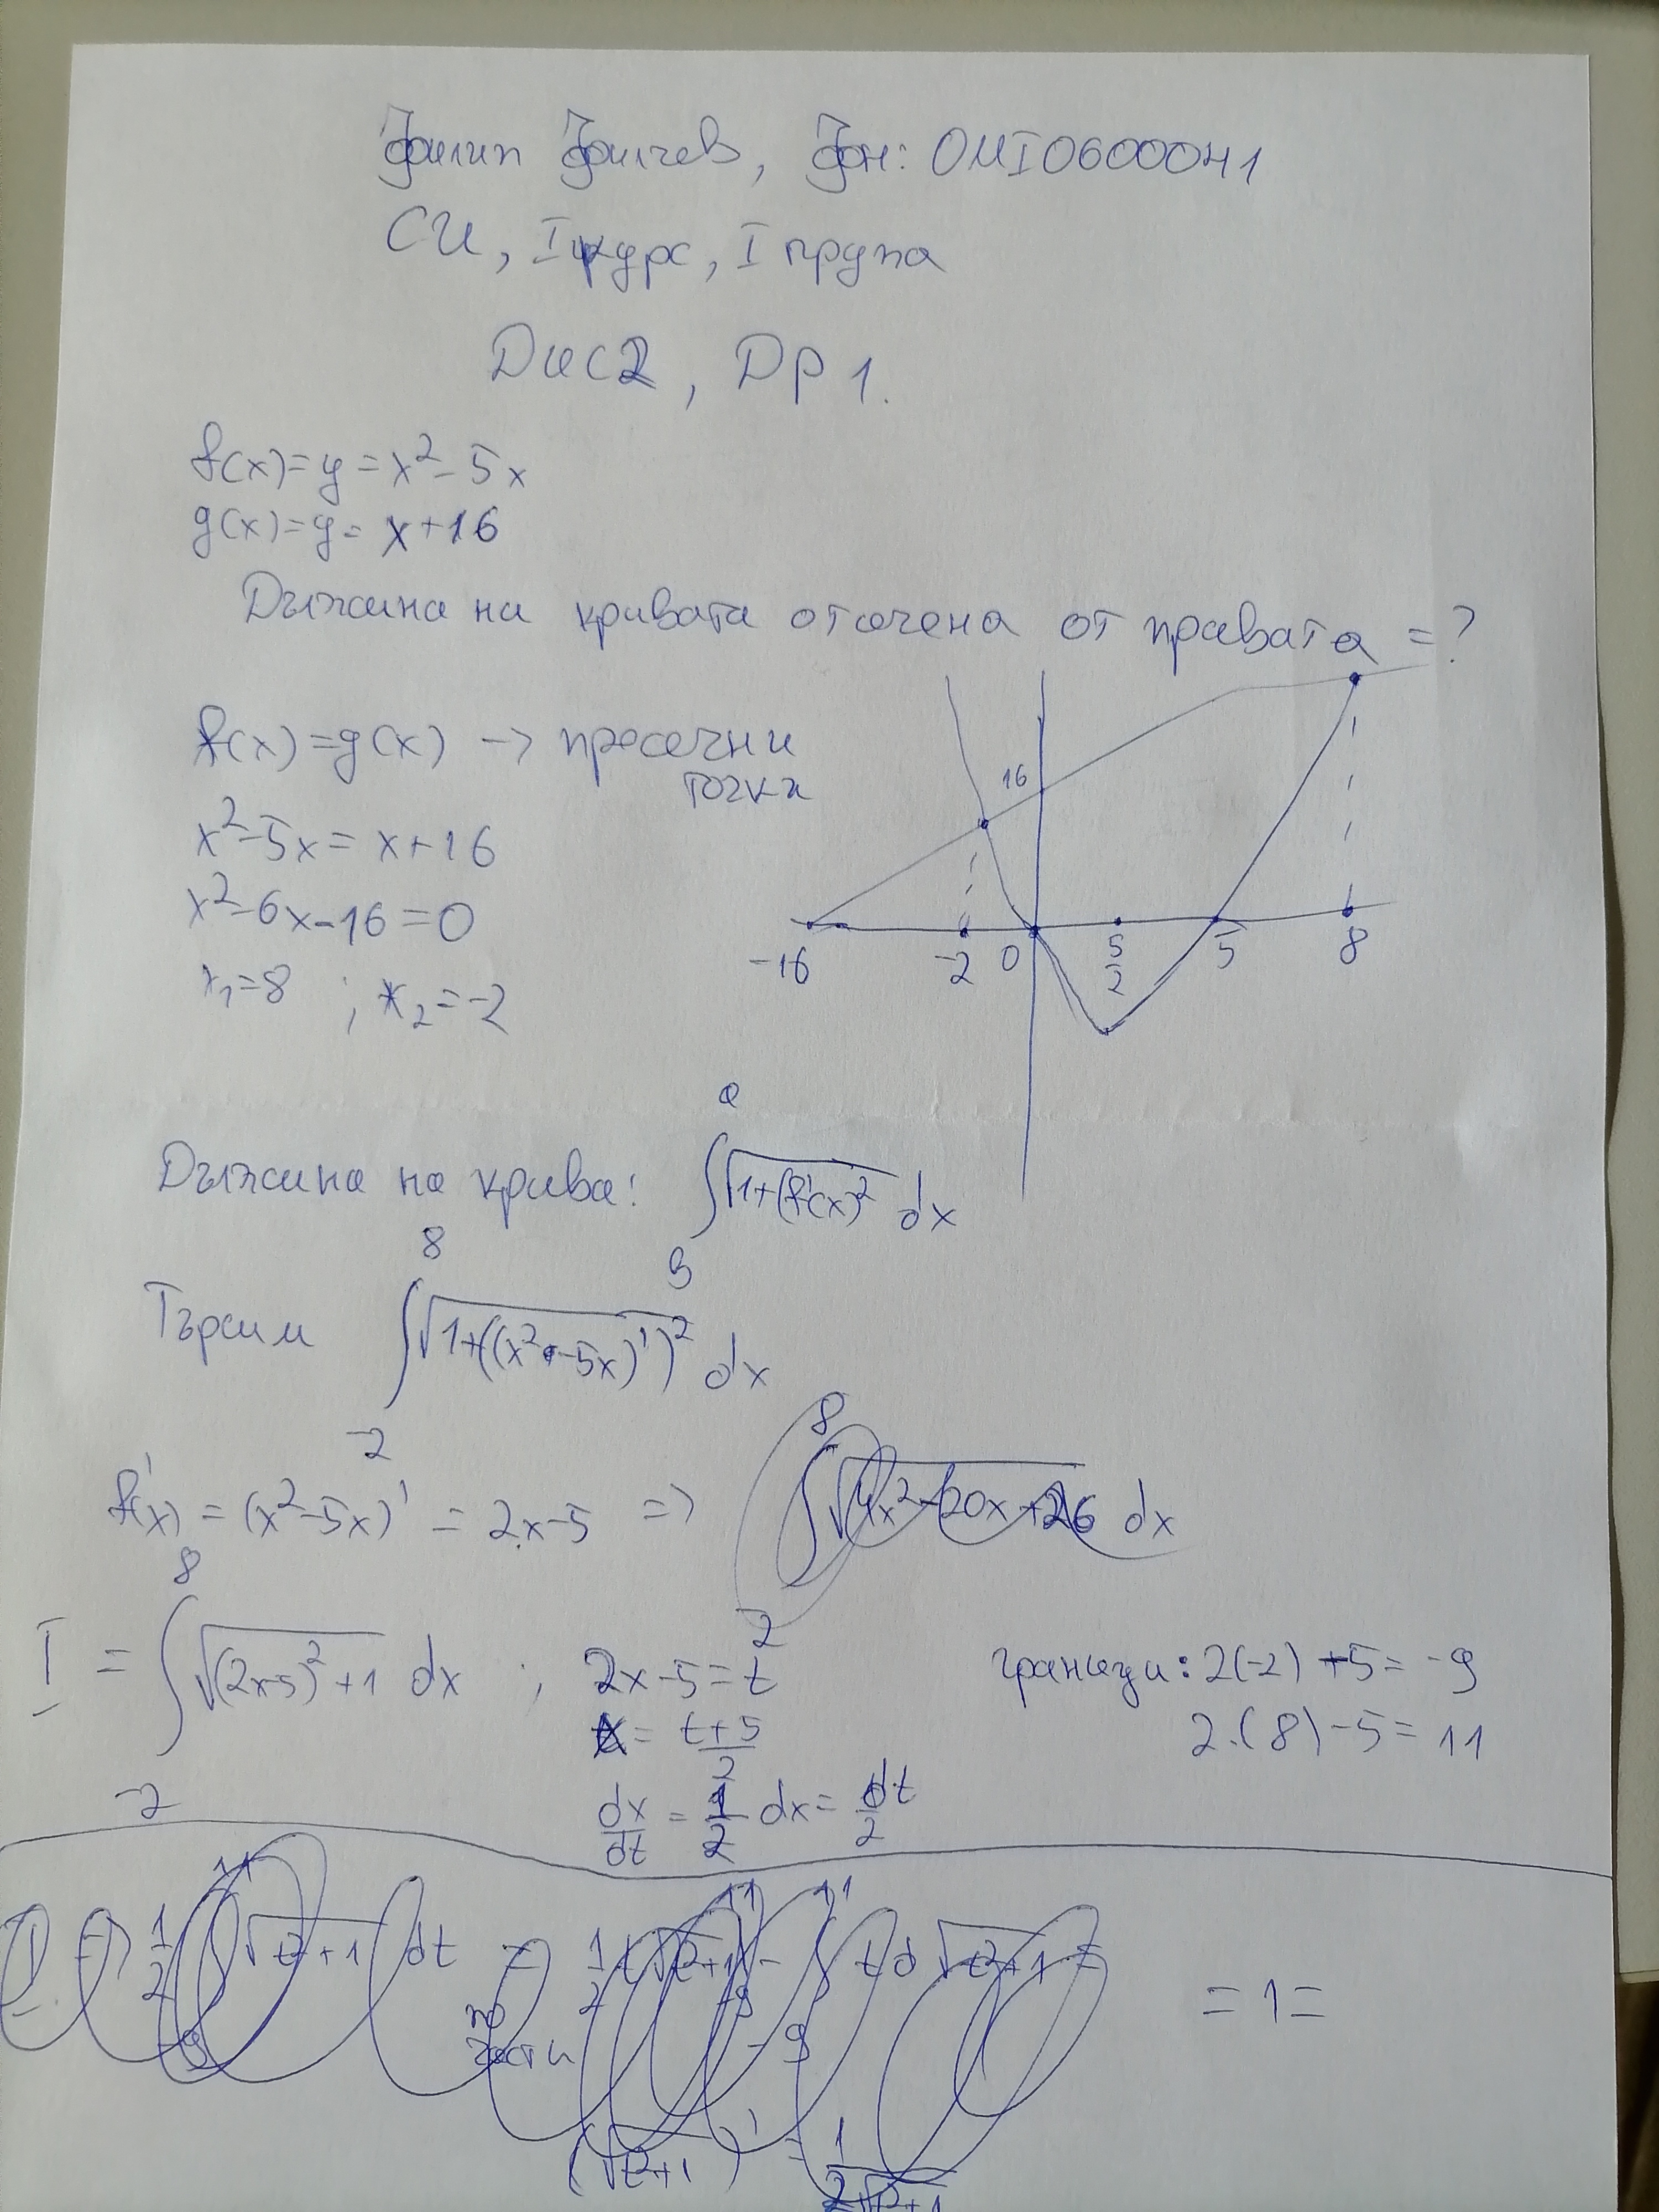 Филип Филчев, Фн: 0MI0600041
СИ, I курс, I група
Дис2, Др 1.
f(x)=y=x²-5x
g(x)=y=x+16
Дължина на кривата отсечена от правата =?
f(x)=g(x) -> пресечни
точки
x²-5x=x+16
x²-6x-16=0
x₁=8 ; x₂=-2
16
-16 -2 0 5/2 5 8
Дължина на крива: ∫ₐᵃ √1+(f'(x))² dx
Търсим ∫₋₂⁸ √1+((x²-5x)')² dx
f'(x) = (x²-5x)' = 2x-5 => ∫₋₂⁸ √4x²-20x+26 dx
I = ∫₋₂⁸ √(2x-5)²+1 dx ; 2x-5=t граници: 2(-2)-5=-9
x = t+5/2 2.(8)-5=11
dx/dt = 1/2 dx = dt/2
1/2 √t²+1 dt = 1/2 t√t²+1 - ∫ t d √t²+1 = = 1 =
по
части
(√t²+1)' = 1/2√t²+1